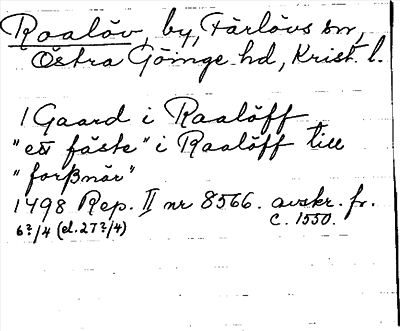 Raalöv, by, Färlövs sn,
Östra Göinge hd, Krist. l.
1 Gaard i Raalöff
"ett fäste" i Raalöff till
"forßnär"
1498 Rep. II nr 8566. avskr. fr.
6?/4 (el. 27?/4) c. 1550.